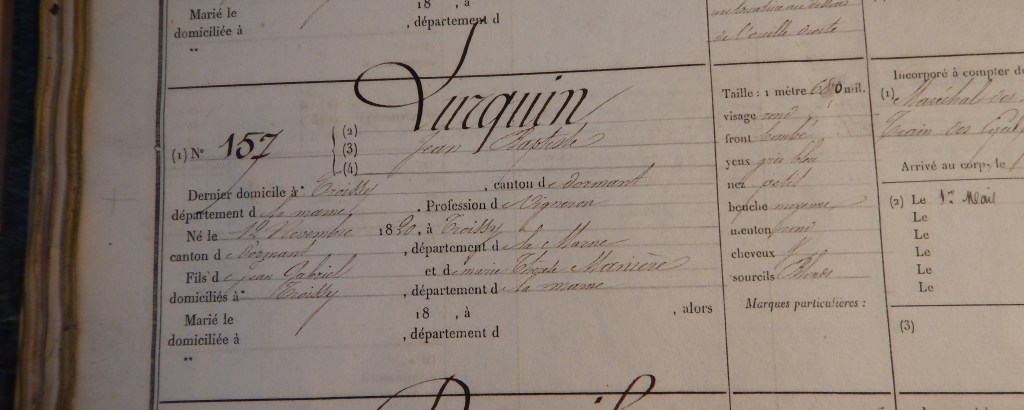 Marié le 18 , à
domiciliée à , département d
"
de l'oreille droite
Turquin
(1) No 157 (2)
(3) Jean Baptiste
(4)
Dernier domicile à Troissy , canton de dormant
département de la marne . Profession de Vigneron
Né le 12 Novembre 1820, à Troissy
canton de Dormant , département de la Marne
Fils de jean Gabriel et de marie Manière
domiciliés à Troissy , département de la marne
Marié le 18 , à , alors
domiciliée à , département d
"
Taille : 1 mètre 680 mil.
visage rond
front bombé
yeux gris bleu
nez petit
bouche moyenne
menton rond
cheveux
sourcils Blonds
Marques particulières :
Incorporé à compter d
(1) Maréchal des
Train des
Arrivé au corps, le
(2) Le 1er Mai
Le
Le
Le
Le
Le
(3)